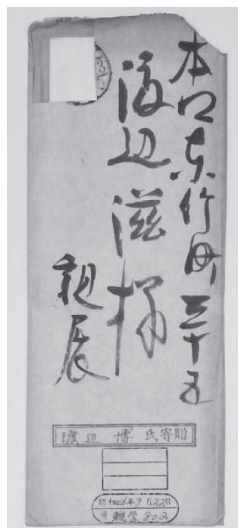 本口东竹町三十五
渡辺滋様
親展
渡辺博氏寄贈